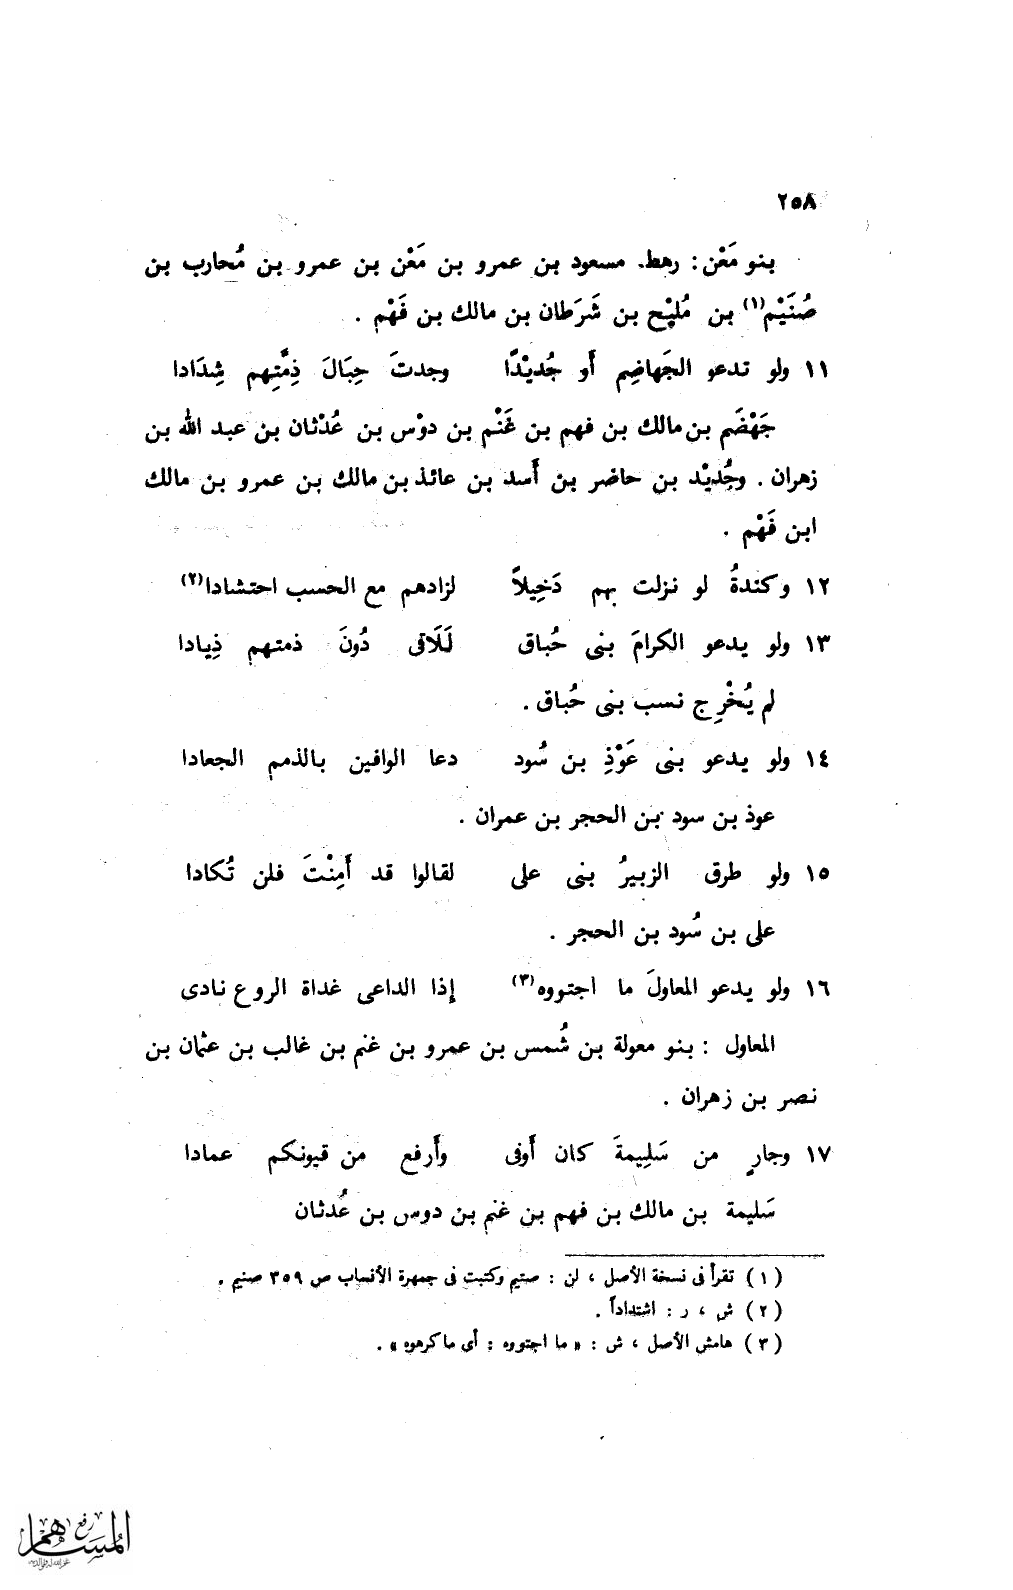 ٢٥٨
بنو مَعْن: رهط. مسعود بن عمرو بن مَعْن بن عمرو بن مُحارب بن
صُنَيْم(١) بن مُليْح بن شَرَطان بن مالك بن فَهْم .
١١ ولو تدعو الجَهاضِم أَو جُديْدًا وجدتَ حِبَالَ ذِمَّتِهم شِدَادا
جَهْضَم بن مالك بن فهم بن غَنْم بن دوْس بن عُدْثان بن عبد الله بن
زهران . وجُديْد بن حاضر بن أَسد بن عائذ بن مالك بن عمرو بن مالك
ابن فَهْم .
١٢ وكندةُ لو نزلت بهم دَخِيلاً لزادهم مع الحسب احتشادا(٢)
١٣ ولو يدعو الكرامَ بنى حُباق لَلَاقى دُونَ ذمتهم ذِيادا
لم يُخْرِج نسب بنى حُباق .
١٤ ولو يدعو بنى عَوْذِ بن سُود دعا الوافين بالذمم الجعادا
عوذ بن سود بن الحجر بن عمران .
١٥ ولو طرق الزبيرُ بنى على لقالوا قد أَمِنْتَ فلن تُكادا
على بن سُود بن الحجر .
١٦ ولو يدعو المعاولَ ما اجتووه(٣) إذا الداعى غداة الروع نادى
المعاول : بنو معولة بن شُمس بن عمرو بن غنم بن غالب بن عثمان بن
نصر بن زهران .
١٧ وجارٍ من سَلِيمةَ كان أَوفى وأَرفع من قيونكم عمادا
سَليمة بن مالك بن فهم بن غنم بن دوس بن عُدثان
(١) تقرأ فى نسخة الأصل ، لن : صتيم وكتبت فى جمهرة الأنساب ص ٣٥٩ صنيم .
(٢) ش ، ر : اشتداداً .
(٣) هامش الأصل ، ش : « ما اجتووه : أى ما كرهوه » .